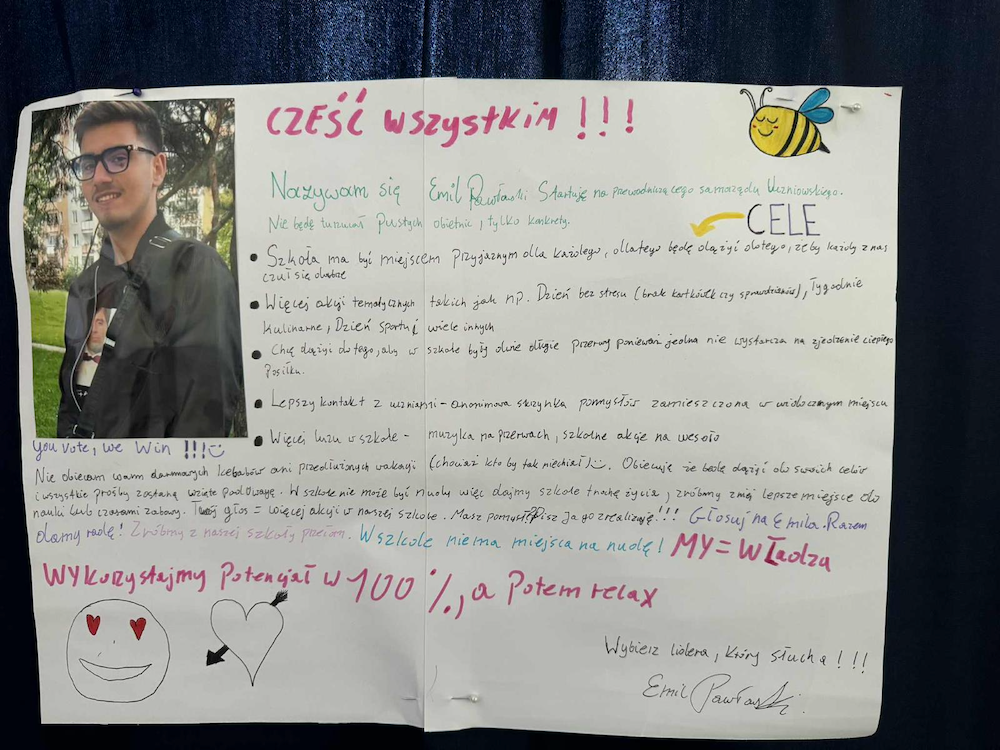 CZEŚĆ WSZYSTKIM !!!
Nazywam się Emil Pawłaski Startuję na przewodniczącego samorządu Uczniowskiego.
Nie będę rzucał pustych obietnic, tylko konkrety.
CELE
• Szkoła ma być miejscem przyjaznym dla każdego, dlatego będę dążyć do tego, żeby każdy z nas
czuł się dobrze
• Więcej akcji tematycznych takich jak np. Dzień bez stresu (brak kartkówek czy sprawdzianów), Tygodnie
kulinarne, Dzień sportu i wiele innych
• Chcę dążyć do tego, aby w szkole były dwie długie przerwy ponieważ jedna nie wystarcza na zjedzenie ciepłego
posiłku.
• Lepszy kontakt z uczniami - anonimowa skrzynka pomysłów zamieszczona w widocznym miejscu
• Więcej luzu w szkole - muzyka na przerwach, szkolne akcje na wesoło
you vote, we win !!!
Nie obiecam wam darmowych kebabów ani przedłużonych wakacji (chociaż kto by tak niechciał). Obiecuję że będę dążyć do swoich celów
i wszystkie prośby zostaną wzięte pod uwagę. W szkole nie może być nudy więc dajmy szkole trochę życia, zróbmy z niej lepsze miejsce do
nauki lub czasami zabawy. Twój głos = więcej akcji w naszej szkole. Masz pomysł? Pisz ja go zrealizuję!!! Głosuj na Emila. Razem
damy radę! Zróbmy z naszej szkoły przełom. W szkole niema miejsca na nudę! MY = WŁadza
WYkorzystajmy Potencjał w 100 %, a Potem relax
Wybierz lidera, który słucha !!!
Emil Pawłaski